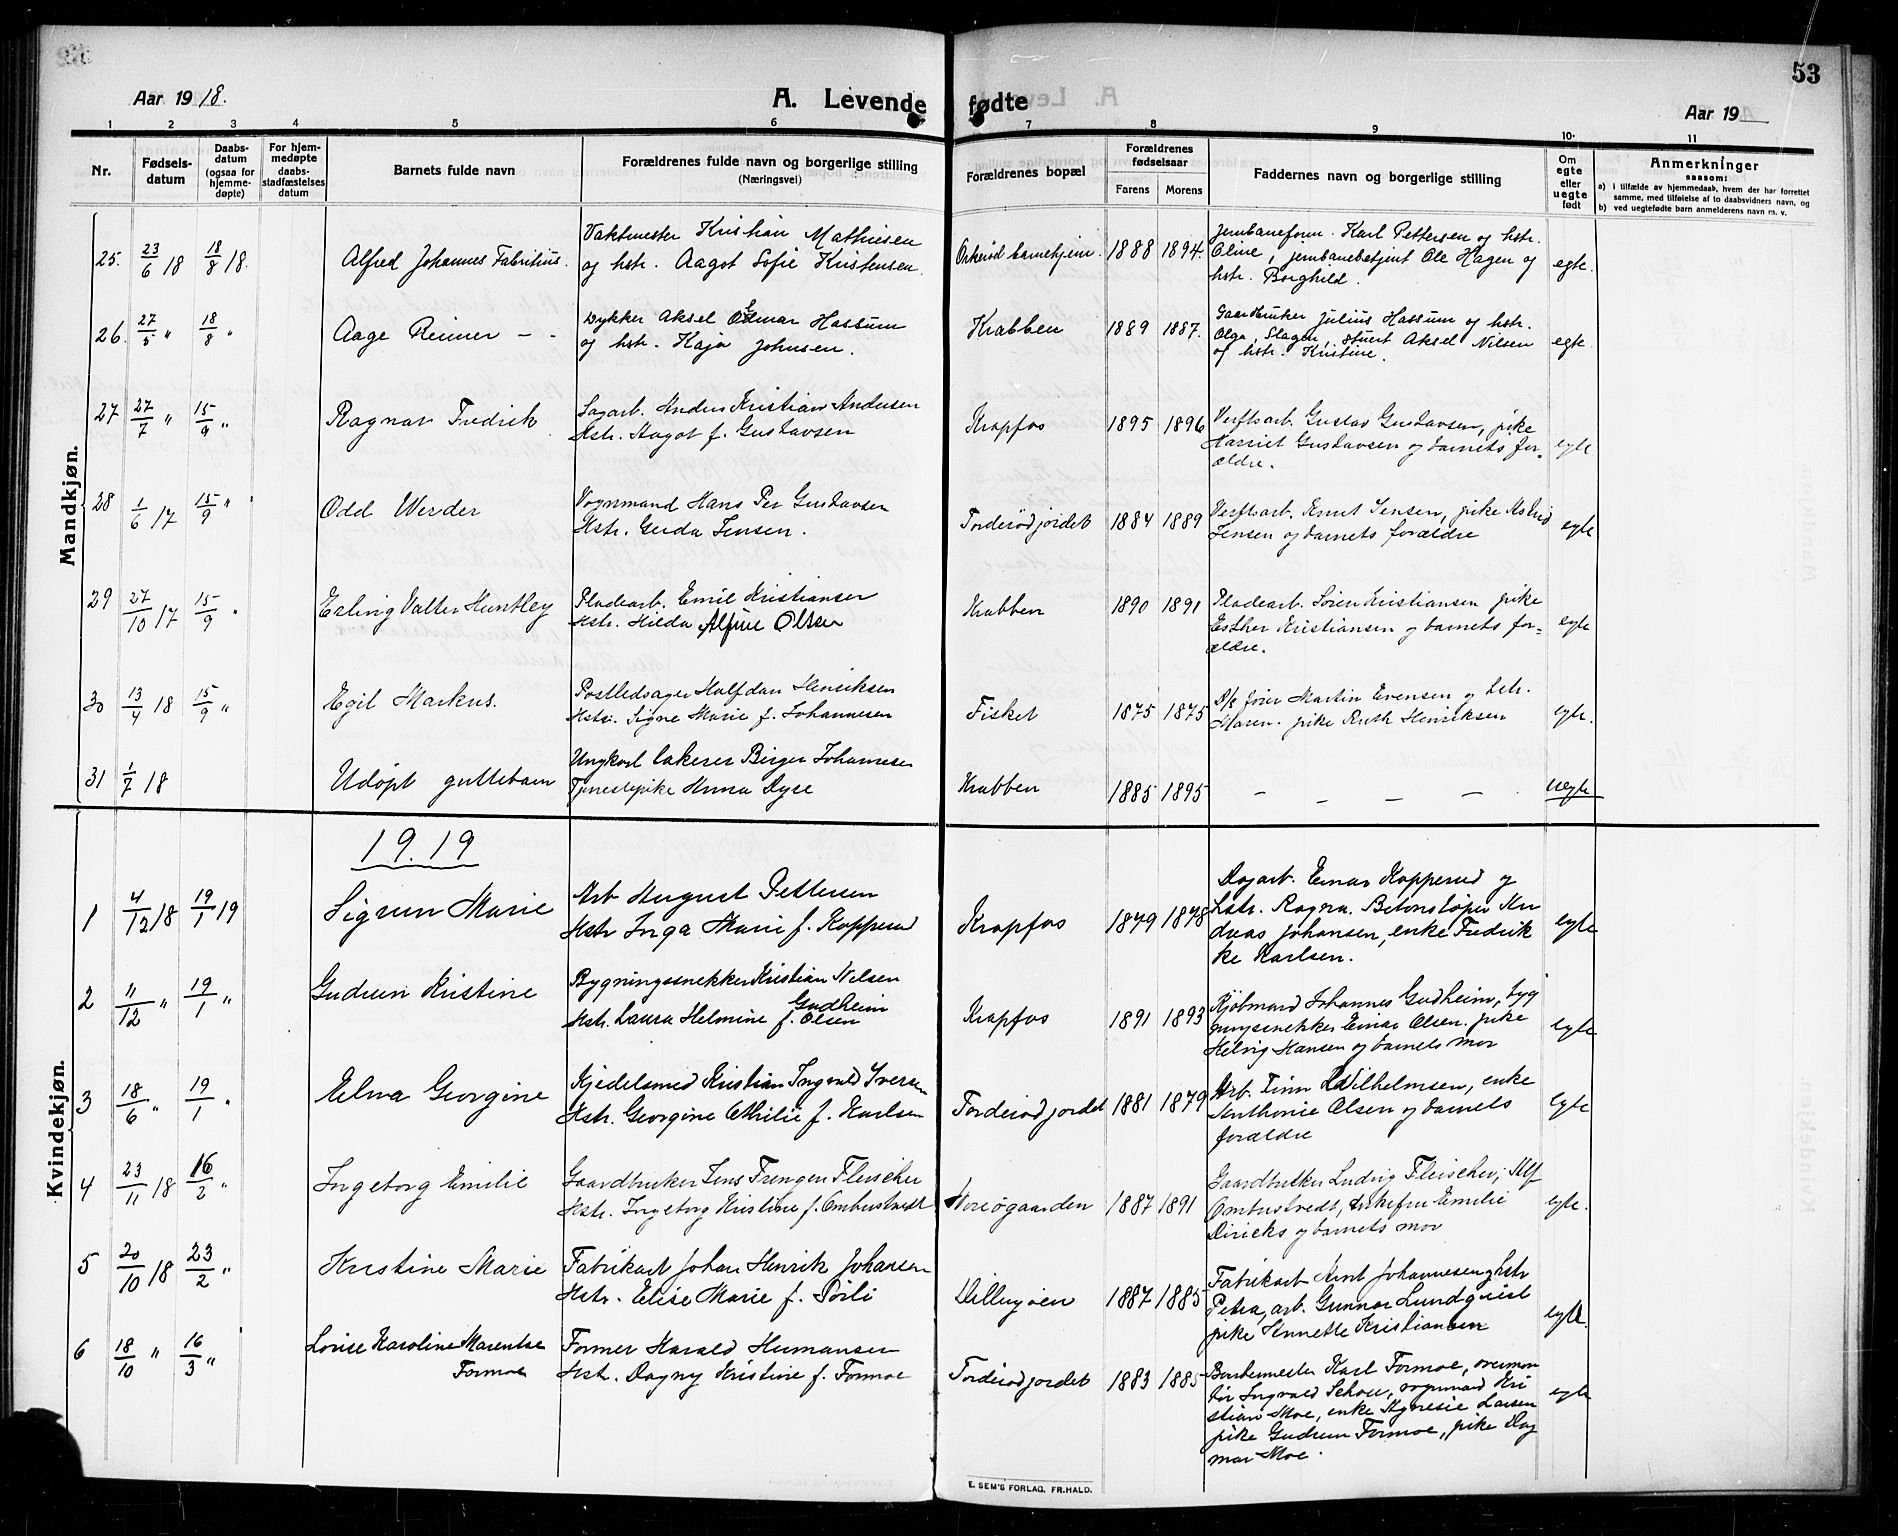 53
Aar 1918.
A. Levende fødte
Aar 19
1 2 3 4 5 6 7 8 9 10. 11
Nr.
Fødsels-
datum
Daabs-
datum
(ogsaa for
hjemme-
døpte)
For hjem-
medøpte
daabs-
stadfæstelses
datum
Barnets fulde navn
Forældrenes fulde navn og borgerlige stilling
(Næringsvei)
Forældrenes bopæl
Forældrenes
fødselsaar
Farens Morens
Faddernes navn og borgerlige stilling
Om
egte
eller
uegte
født
Anmerkninger
saasom:
a) i tilfælde av hjemmedaab, hvem der har forrettet
samme, med tilføielse af to daabsvidners navn, og
b) ved uegtefødte barn anmelderens navn m. v.
Mandkjøn.
25. 23/6 18 18/8 18. Alfred Johannes Fabritius.
Vaktmester Kristian Mathiesen
og hstr. Aagot Sofie Kristensen
barnehjem. 1888 1894.
Jernbaneform. Karl Pettersen og hstr.
Oline, jernbanebetjent Ole Hagen og
hstr. Borghild.
egte.
26. 27/5 " 18/8 " Aage Reimer - -
Dykker Aksel Hassum
og hstr. Kaja Johnsen.
Krabben 1889 1887.
Gaardbruker Julius Hassum og hstr.
Olga, Slagen, stuert Aksel Nilsen
og hstr. Kristine.
egte.
27 27/7 " 15/9 " Ragnar Fredrik
Sagarb. Anders Kristian Andersen
Hstr. Aagot f. Gustavsen
Krapfos 1895 1896
Verftsarb. Gustav Gustavsen, pike
Harriet Gustavsen og barnets for-
ældre.
egte
28 1/6 17 15/9 " Odd Werder
Vognmand Hans Per Gustavsen
Hstr. Gerda Jensen.
Torderødjordet 1884 1889
Verftsarb. Knut Jensen, pike Astrid
Jensen og barnets forældre
egte
29 27/10 17 15/9 " Erling Valter Huntley
Pladearb. Emil Kristiansen
Hstr. Hilda Alfine Olsen
Krabben 1890 1891
Pladearb. Søren Kristiansen pike
Esther Kristiansen og barnets for-
ældre.
egte
30 13/4 18 15/9 " Egil Markus.
Postledsager Halfdan Henriksen
Hstr. Signe Marie f. Johannesen
Fisket 1875 1875
Martin Evensen og hstr.
Maren. pike Ruth Henriksen
egte.
31 1/7 18 Udøpt guttebarn
Ungkarl lakerer Birger Johannesen
Tjenestepike Anna Dyse
Krabben 1885 1895 - - - - uegte
Kvindekjøn.
1919
1 4/12 18 19/1 19 Sigrun Marie
Arb August Pettersen
Hstr Inga Marie f. Kopperud
Krapfos 1879 1878
Dagarb. Einar Kopperud og
hstr. Ragna. Betonstøper An
dreas Johansen, enke Fredrik
ke Karlsen.
egte
2 11/12 " 19/1 " Gudrun Kristine
Bygningssnekker Kristian Nilsen
Gudheim
Hstr. Laura Helmine f. Olsen
Krapfos 1891 1893
Kjøbmand Johannes Gudheim, byg
ningssnekker Einar Olsen. pike
Helvig Hansen og barnets mor
egte
3 18/6 " 19/1 " Elna Georgine
Kjedelsmed Kristian Ingvald Iversen
Hstr. Georgine Othilie f. Karlsen
Torderødjordet 1881 1879
Arb. Finn Wilhelmsen, enke
Anthonie Olsen og barnets
forældre
egte
4 23/11 18 16/2 " Ingeborg Emilie
Gaardbruker Jens Frengen Fleischer
Hstr. Ingeborg Kristine f. Ombustvedt
1887 1891
Gaardbruker Ludvig Fleischer, Alf
Ombustvedt, enkefru Emilie
Diricks og barnets mor
egte.
5 20/10 18 23/2 " Kristine Marie
Fabrikarb Johan Henrik Johansen
Hstr. Elise Marie f. Sørli
Dillingøen 1887 1885
Fabrikarb Arnt Johannesen og hstr
Petra, arb. Gunnar Lundquist
pike Annette Kristiansen
egte.
6 18/10 " 16/3 " Lovise Karoline Marentse
Formoe
Former Harald Hermansen
Hstr. Dagny Kristine f. Formoe
Torderødjordet 1883 1885
Karl Formoe, overmon
tør Ingvald Schou, vognmand Kri
stian Moe, enke Agnesie Larsen
pike Gudrun Formoe, pike Dag
mar Moe.
egte
E. SEM'S FORLAG, FR.HALD.